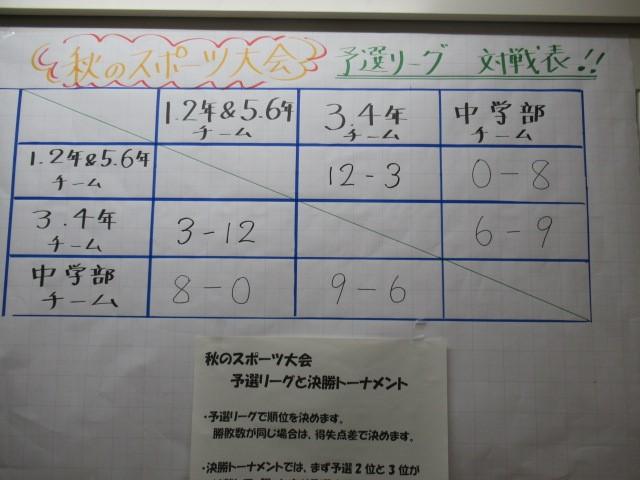 秋のスポーツ大会 予選リーグ 対戦表!!
1.2年&5.6年
チーム
3.4年
チーム
中学部
チーム
1.2年&5.6年
チーム
12-3
0-8
3.4年
チーム
3-12
6-9
中学部
チーム
8-0
9-6
秋のスポーツ大会
予選リーグと決勝トーナメント
・予選リーグで順位を決めます。
勝敗数が同じ場合は、得失点差で決めます。
・決勝トーナメントでは、まず予選2位と3位が